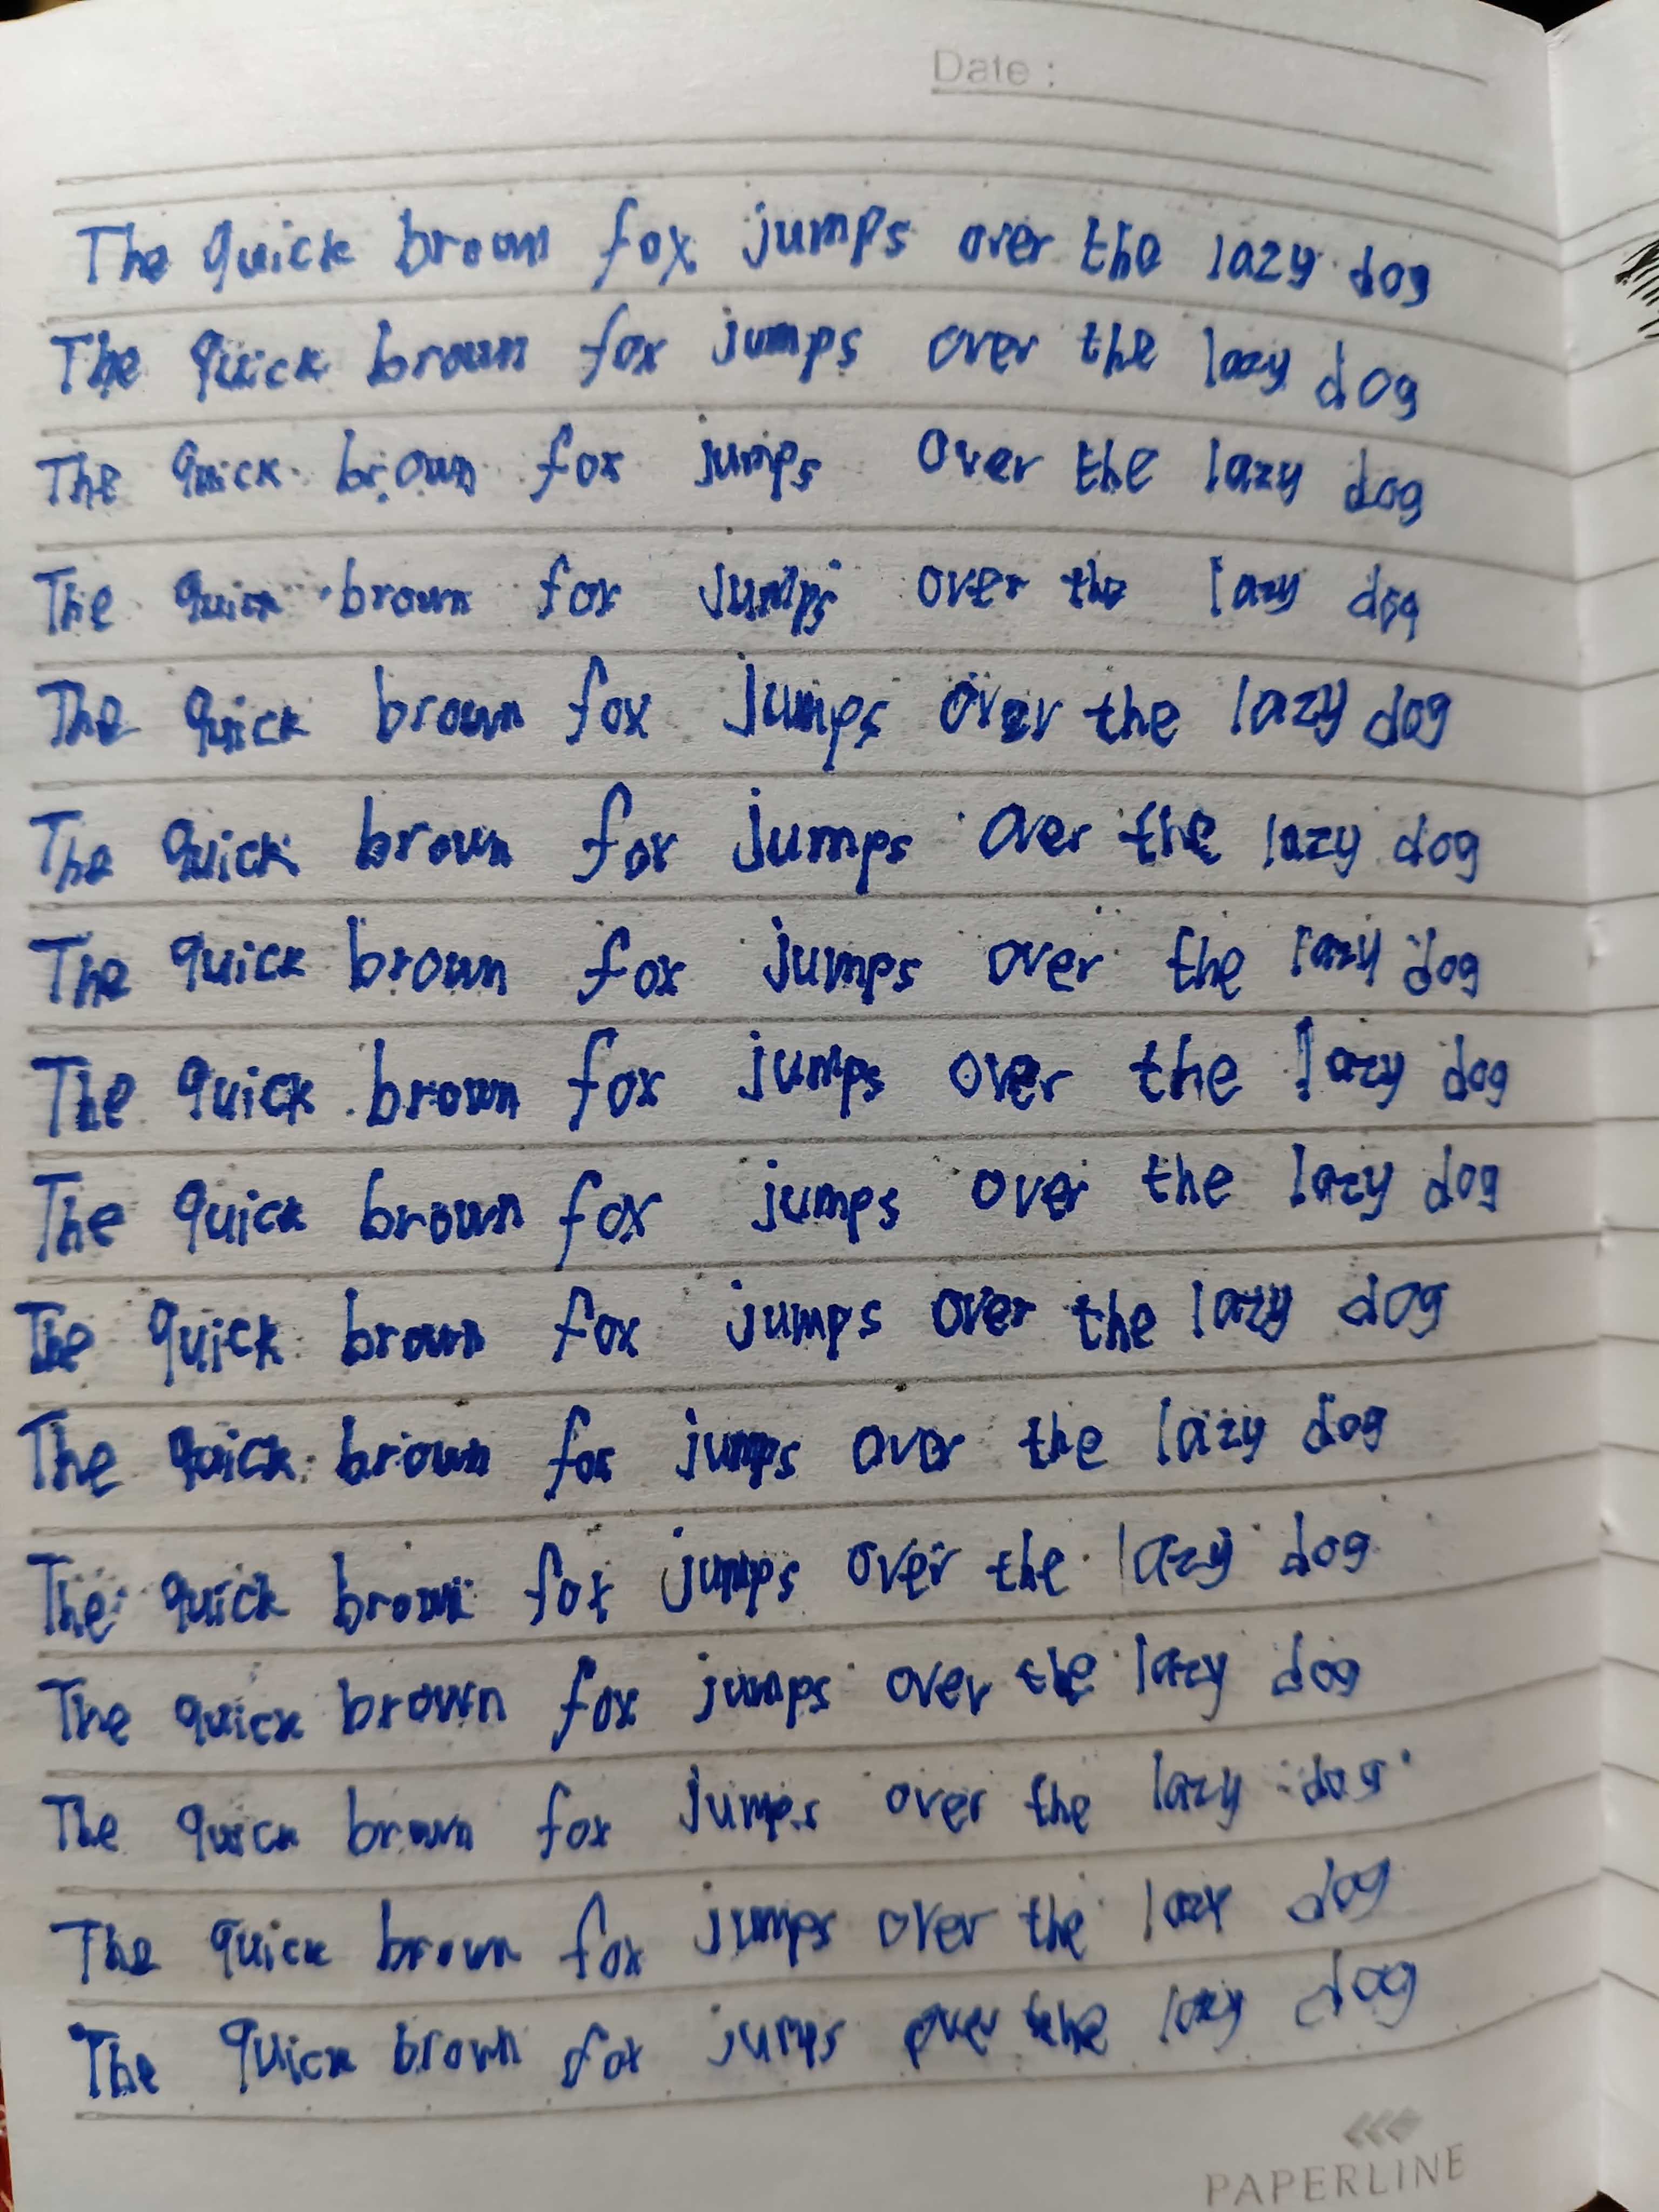 Date :
The quick brown fox jumps over the lazy dog
The quick brown fox jumps over the lazy dog
The quick brown fox jumps over the lazy dog
The quick brown fox jumps over the lazy dog
The quick brown fox jumps over the lazy dog
The quick brown fox jumps over the lazy dog
The quick brown fox jumps over the lazy dog
The quick brown fox jumps over the lazy dog
The quick brown fox jumps over the lazy dog
The quick brown fox jumps over the lazy dog
The quick brown fox jumps over the lazy dog
The quick brown fox jumps over the lazy dog
The quick brown fox jumps over the lazy dog
The quick brown fox jumps over the lazy dog
The quick brown fox jumps over the lazy dog
The quick brown fox jumps over the lazy dog
PAPERLINE